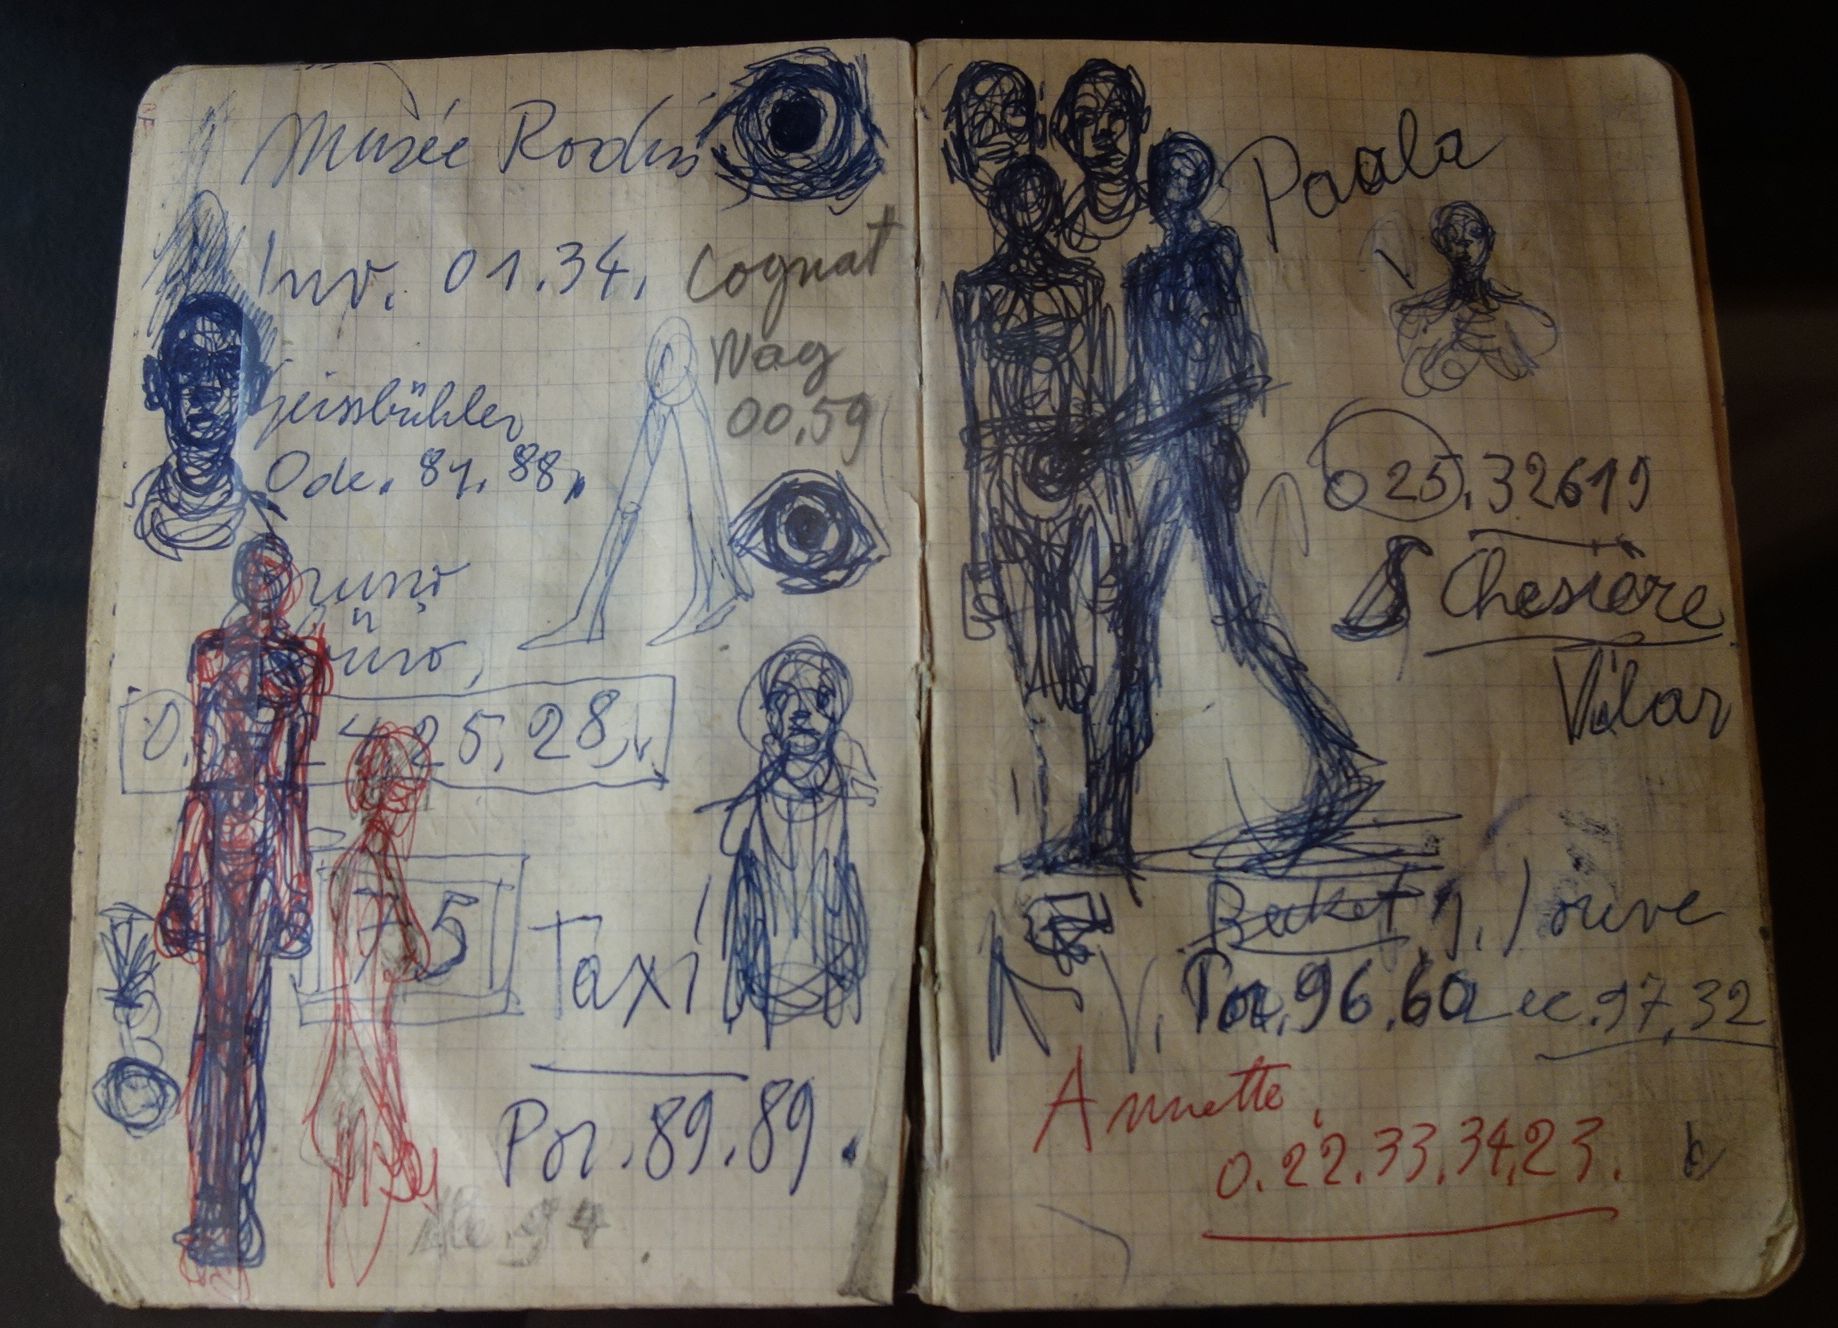 Musée Rodin
Inv. 01.34.
Cognat
Wag
00.59
Geissbühler
Ode. 81.88.
Bruno
Büro,
25.28.
75
Taxi
Por. 89.89.
94
Paola
025.32619
Chesière
Vilar
Becket, J. Jouve
Por. 96.60
97.32
Annette,
0.22.33.34.23.